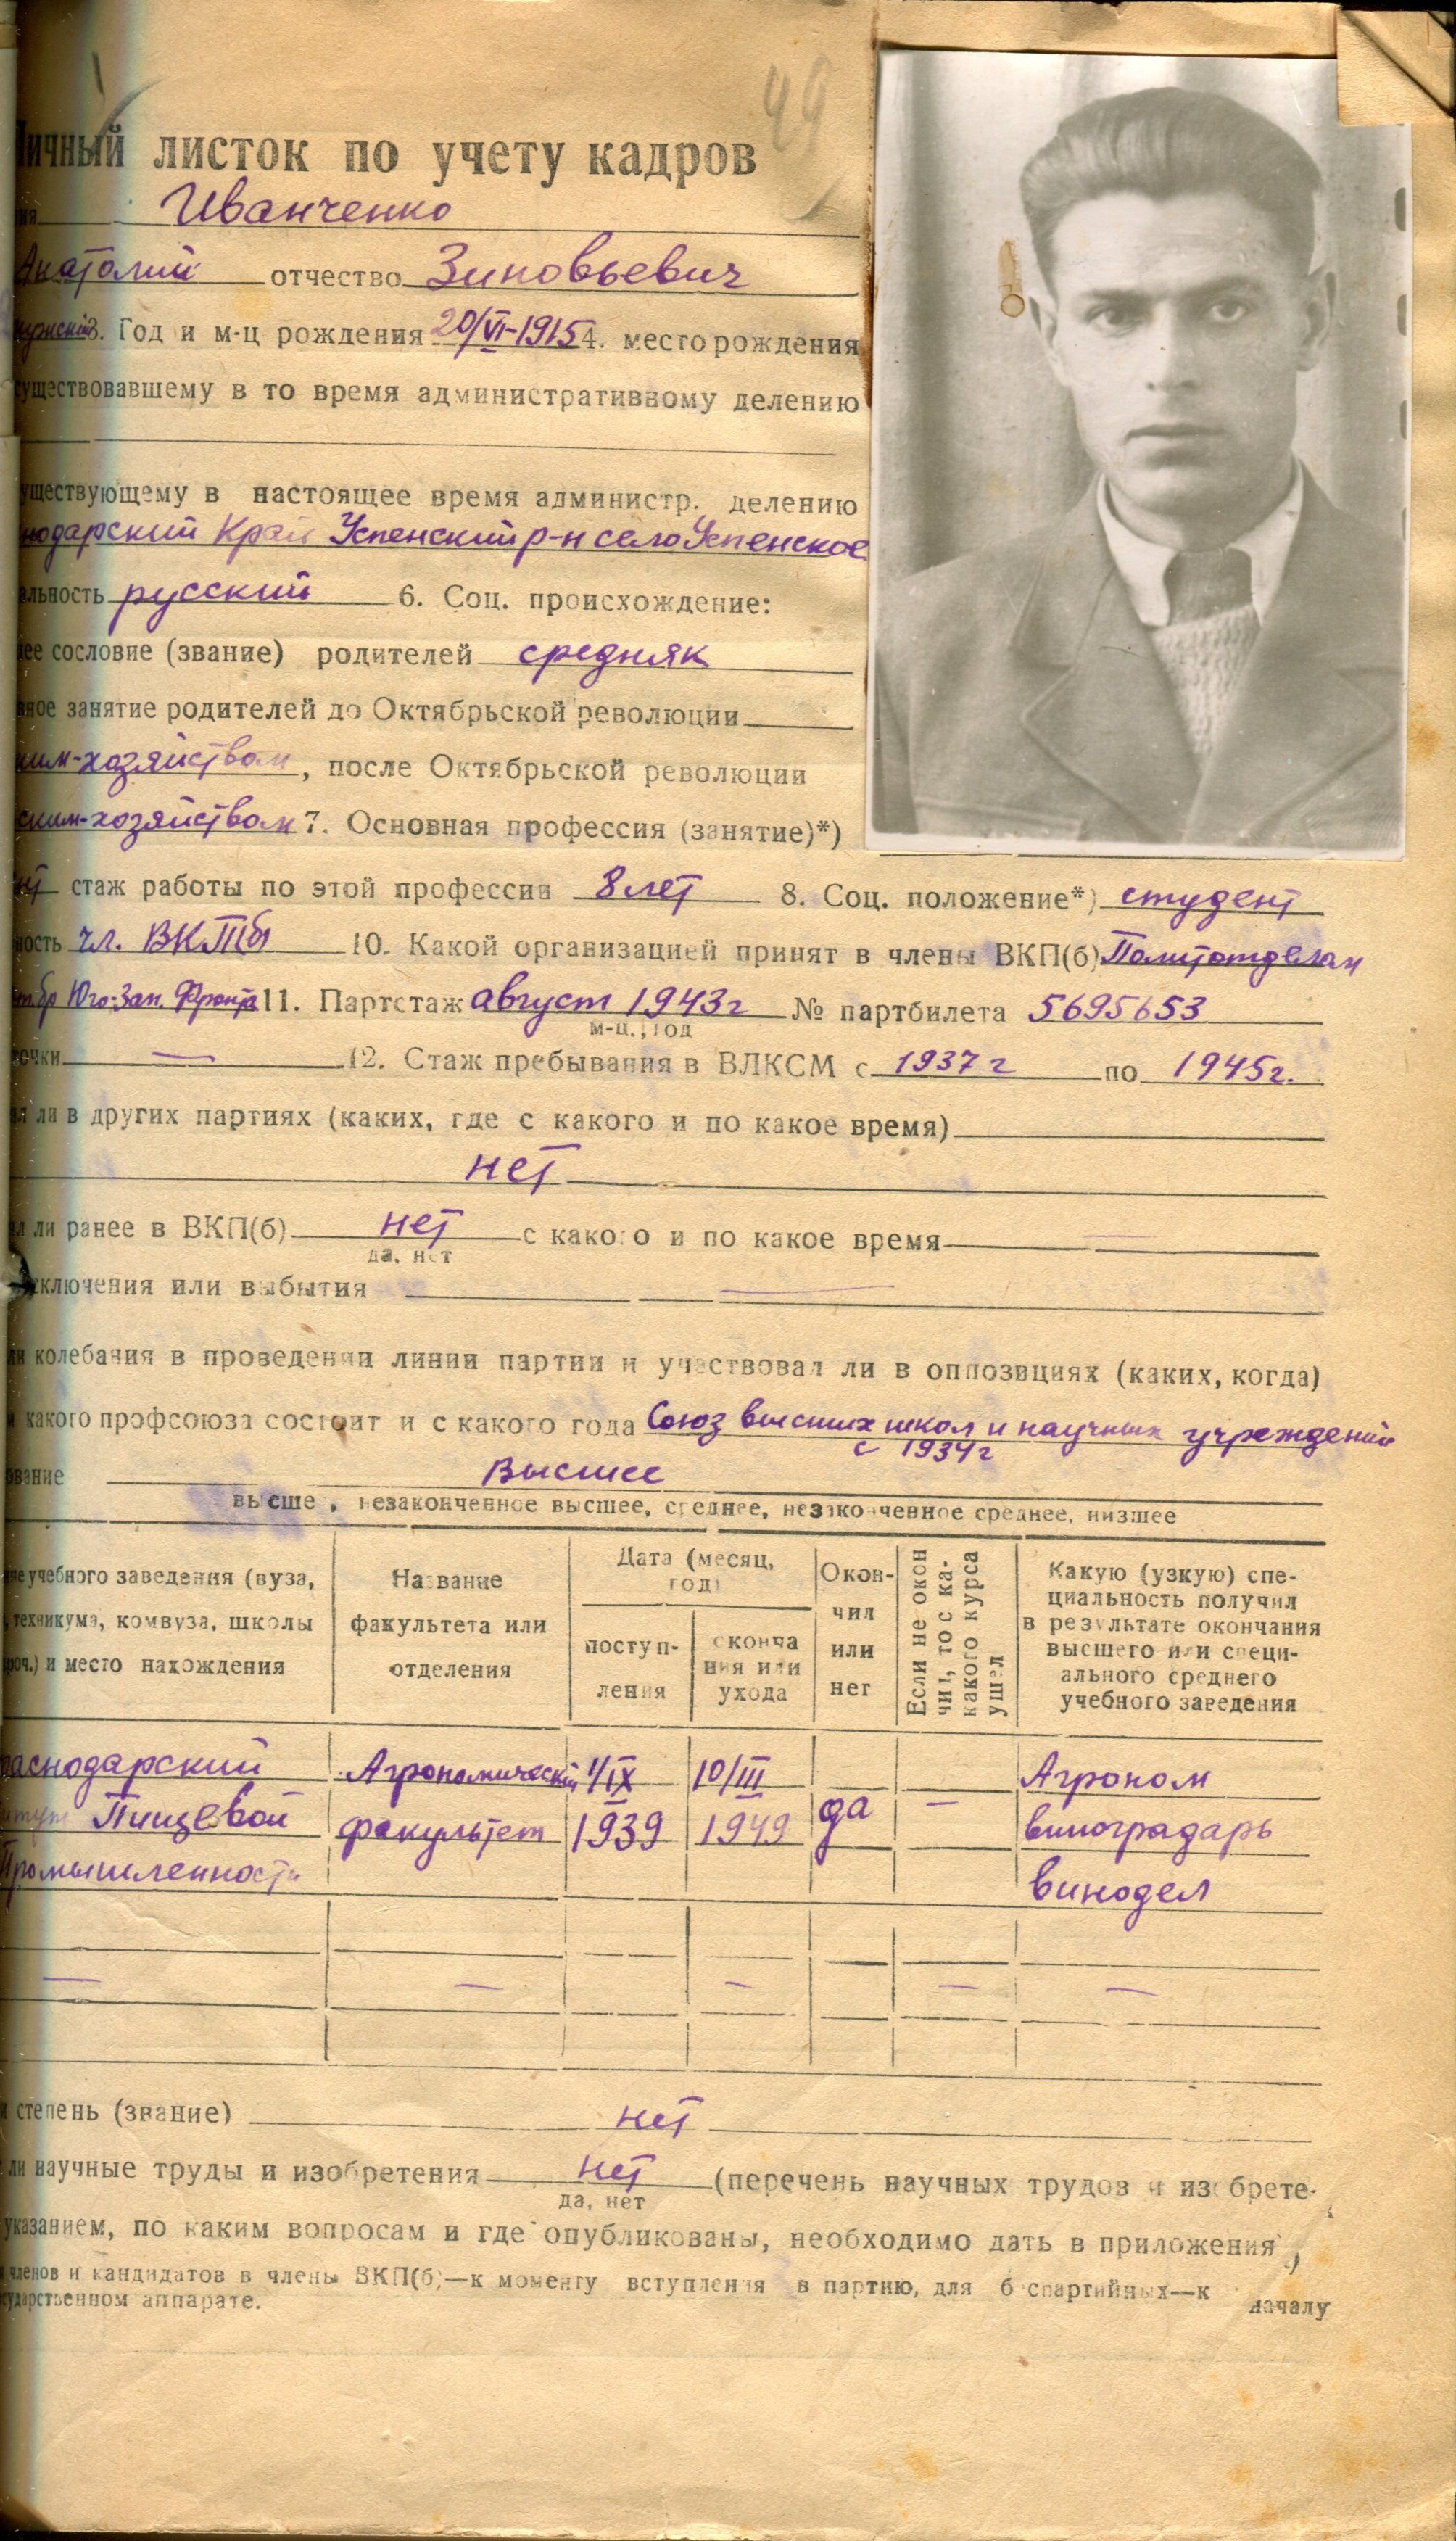 49
Личный листок по учету кадров
ия Иванченко
Анатолий отчество Зиновьевич
мужской 3. Год и м-ц рождения 20/VI-1915 4. место рождения
существовавшему в то время административному делению
уществующему в настоящее время администр. делению
нодарский Край Успенский р-н село Успенское
альность русский 6. Соц. происхождение:
ее сословие (звание) родителей середняк
вное занятие родителей до Октябрьской революции
ким-хозяйством, после Октябрьской революции
ским-хозяйством 7. Основная профессия (занятие)*)
нт стаж работы по этой профессии 8 лет 8. Соц. положение*) студент
ность чл. ВКПб 10. Какой организацией принят в члены ВКП(б) Политотделом
бр Юго-Зап. Фронта 11. Партстаж август 1943г № партбилета 5695653
м-ц., год
точки — 12. Стаж пребывания в ВЛКСМ с 1937 г по 1945г.
л ли в других партиях (каких, где с какого и по какое время)
нет
л ли ранее в ВКП(б) нет с какого и по какое время —
да, нет
сключения или выбытия —
ли колебания в проведении линии партии и участвовал ли в оппозициях (каких, когда)
и какого профсоюза состоит и с какого года Союз высших школ и научных учреждений
с 1934 г
ование Высшее
высше, незаконченное высшее, среднее, незаконченное среднее, низшее
ние учебного заведения (вуза,
техникума, комвуза, школы
проч.) и место нахождения
Название
факультета или
отделения
Дата (месяц,
год)
поступ-
ления
оконча
ния или
ухода
Окон-
чил
или
нет
Если не окон
чил, то с ка-
какого курса
ушел
Какую (узкую) спе-
циальность получил
в результате окончания
высшего или специ-
ального среднего
учебного заведения
раснодарский Агрономический 1/IX 10/III Агроном
итут Пищевой факультет 1939 1949 да — виноградарь
Промышленности винодел
— — — — —
и степень (звание) нет
ли научные труды и изобретения нет (перечень научных трудов и изобрете-
да, нет
указанием, по каким вопросам и где опубликованы, необходимо дать в приложения)
членов и кандидатов в члены ВКП(б)—к моменту вступления в партию, для беспартийных—к началу
сударственном аппарате.